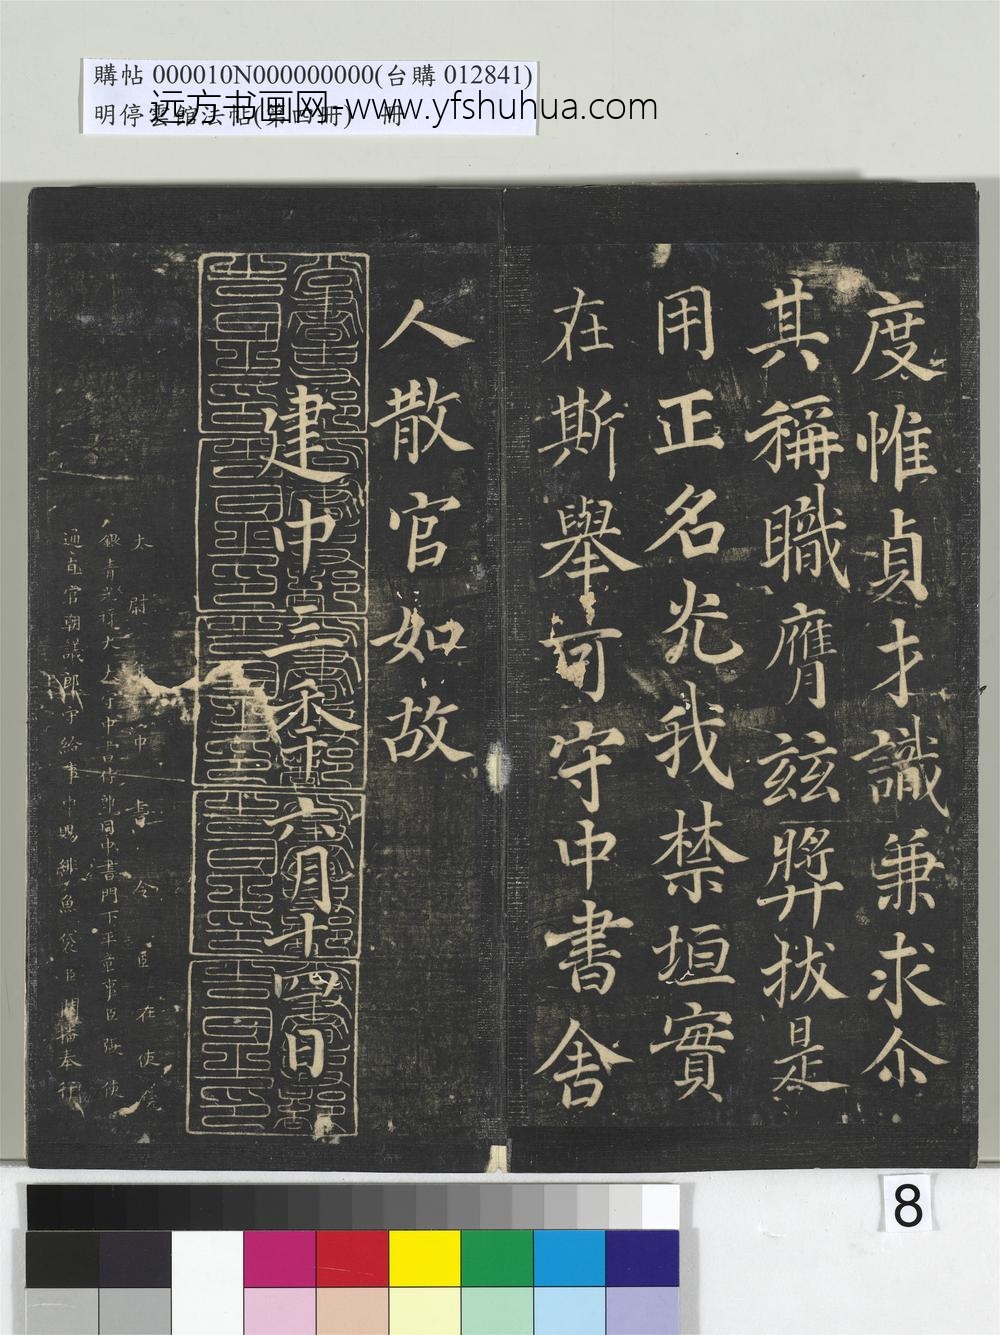 購帖 000010N000000000(台購 012841)
明停雲館法帖(第四冊) 冊
远方书画网-www.yfshuhua.com
度惟貞才識兼求尒
其稱職膺茲獎拔是
用正名光我禁垣實
在斯舉可守中書舍
人散官如故
建中三年六月十四日
太尉 中書令臣在使院
銀青光祿大夫 中書侍郎同中書門下平章事臣張 使
通直官朝議郎守給事中賜緋魚袋臣關播奉行
8